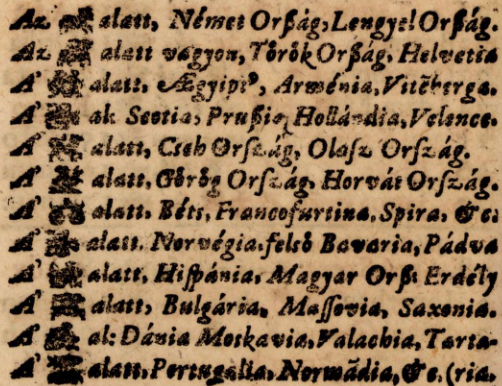 Az alatt, Német Orßág, Lengyel Orßág.
Az alatt vagyon, Török Orßág, Helvetia
A' alatt, Ægyiptꝰ, Arménia, Vitẽberga.
A' al: Scotia, Prußia, Hollándia, Velence.
A' alatt, Cseh Orſzág, Olasz Orſzág.
A' alatt, Görög Orſzág, Horvát Orſzág.
A' alatt, Béts, Francofurtina, Spira, &c:
A' alatt. Norvégia, felsö Bavaria, Pádva
A' alatt, Hißpánia, Magyar Orß: Erdély
A' alatt, Bulgária, Maſſovia, Saxonia.
A' al: Dánia Moſkavia, Valachia, Tarta-
A' alatt, Portugallia, Normãdia, &c. (ria.